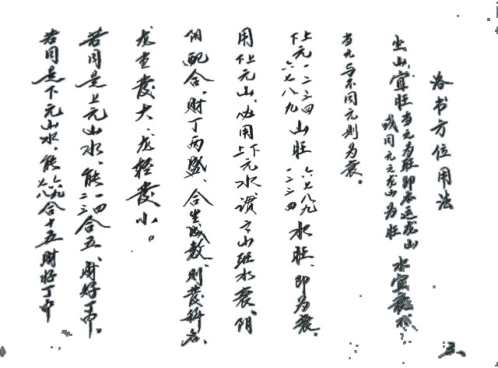 各书方位用法
坐山宜旺当元为旺即本运龙山 水宜衰
或同元龙山为旺
当元与不同元则为衰。
上元一二三四山旺 六七八九水旺、即为衰。
下六七八九 一二三四
用上元山、必用下元水、谓之山旺水衰、阴
下 上
阴配合、财丁两盛、合生成数、则发科名。
龙重发大、龙轻发小。
若同是上元山水、能一四合五、财好丁常。
二三
若同是下元山水、能六九合十五财好丁常
七八